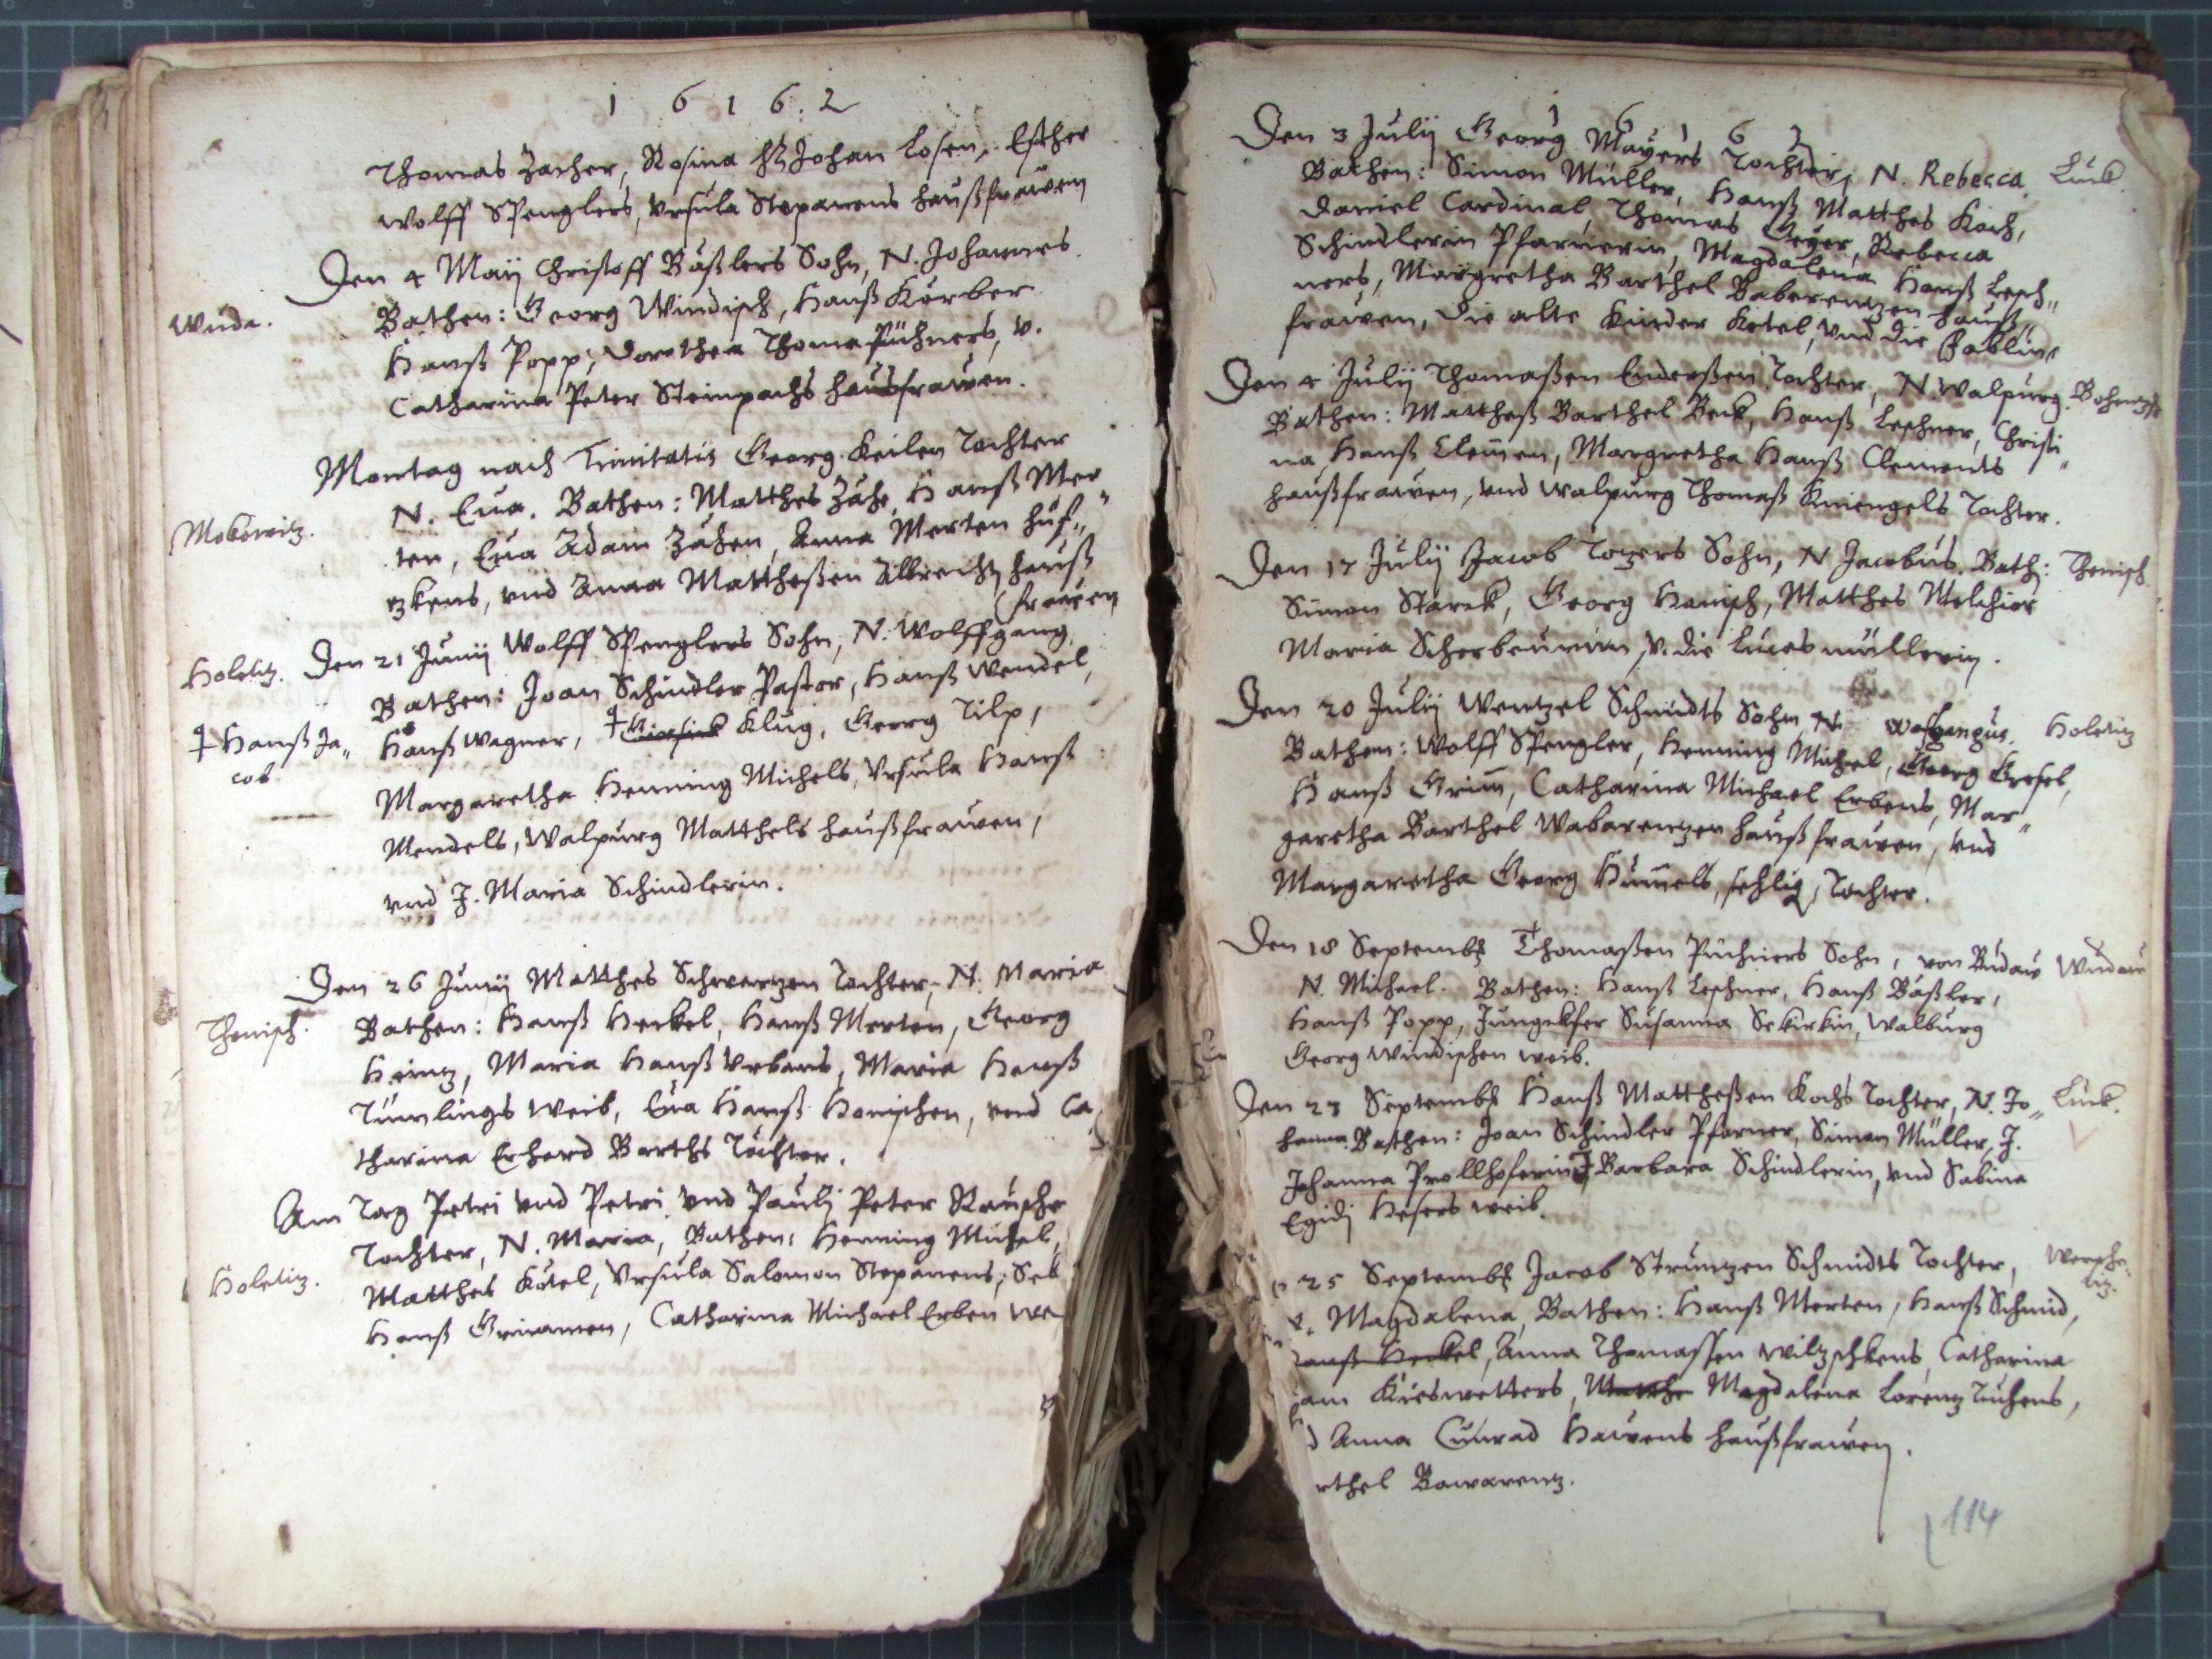 1 6 1 6. 2
Thomas Zacher, Rosina H Johan Losen, Esther
Wolff Spenglers, Vrsula Stepanens haußfrawen
Wuda.
Den 4 Maÿ Christoff Bäßlers Sohn, N. Johannes.
Bathen: Georg Windisch, Hanß Körber
Hanß Popp, Dorothea Thoma Püchners, v.
Catharina Peter Steinpachs haußfrawen.
Mokowitz.
Montag nach Trinitatis Georg Keilen Tochter
N. Eua. Bathen: Matthes Zähe, Hanß Mer„
ten, Eua Adam Zähen, Anna Merten
vnd Anna Mattheßen Albrechts hauß
(frawen
Holetitz.
Den 21 Junij Wolff Spenglers Sohn, N. Wolffgang.
Bathen: Joan Schindler Pastor, Hanß Wendel,
‡ Hanß Ja„
cob
Hanß Wagner, ‡ Klug, Georg Tilp,
Margaretha Henning Michels, Vrsula Hanß
Wendels, Walpurg Matthels haußfrawen,
vnd J. Maria Schindlerin.
Den 26 Junij Matthes Schwartzen Tochter, N. Maria
Thenisch.
Bathen: Hanß Heckel, Hanß Merten, Georg
Heintz, Maria Hanß Vrbans, Maria Hanß
Tümlings Weib, Eua Hanß Honischen, vnd Ca
tharina Erhard Barths Töchter.
Am Tag Petri vnd Petri vnd Paulj Peter Rausche
Tochter, N. Maria, Bathen: Henning Michel,
Holetitz.
Matthes Kötel, Vrsula Salomon Stepanens, Seb
Hanß Grimmen, Catharina Michael Erben We
1 6 1 6 2
Den 3 Julij Georg Mayers Tochter, N. Rebecca.
Luck.
Bathen: Simon Müller, Hanß Matthes Koch,
Daniel Cardinal, Thomas Geyer, Rebecca
Schindlerin Pfarrerin, Magdalena Hanß Lesch„
ners, Margretha Barthel Baberentzen hauß„
frawen, die alte Kinder Kötel, vnd die
Den 4 Julij Thomaßen Enderßen Tochter, N. Walpurg.
Bathen: Mattheß Barthel Beck, Hanß Leschner, Christi„
na Hanß Clemen, Margretha Hanß Clements
haußfrawen, vnd Walpurg Thomaß Kniengels Tochter.
Den 17 Julij Jacob Tozers Sohn, N Jacobus. Bath:
Thenisch
Simon Starck, Georg Hanisch, Matthes Melchior
Maria Scherbeumin, v. die Lucasmüllerin.
Den 20 Julij Wentzel Schmidts Sohn N. Wolfgangus.
Holetitz
Bathen: Wolff Spengler, Henning Michel, Georg Gresel,
Hanß Grim̄, Catharina Michael Erbens, Mar„
garetha Barthel Wabarentzen haußfrawen, vnd
Margaretha Georg Hum̄els, sehlig, Tochter.
Den 18 Septemb Thomaßen Püchners Sohn, von Vudaw
Wudaw
N. Michael. Bathen: Hanß Leschner, Hanß Bäßler,
Hanß Popp, Jungckfer Susanna Sekirkin, Walburg
Georg Windischen Weib.
Den 23 Septemb Hanß Mattheßen Kochs Tochter, N. Jo„
Luck.
hanna. Bathen: Joan Schindler Pfarrer, Simon Müller, J.
Johanna Prollhoferin J Barbara Schindlerin, vnd Sabina
Egidj Hesers Weib.
25 Septemb Jacob Struntzen Schmidts Tochter,
Wersche„
titz.
Magdalena, Bathen: Hanß Merten, Hanß Schmid,
anß Heckel, Anna Thomassen Wiltzschkens, Catharina
am Kieswetters, Matthe Magdalena Lorentz Luchens,
d Anna Cunrad Hawens haußfrawen.
rthel Bawarentz.
114